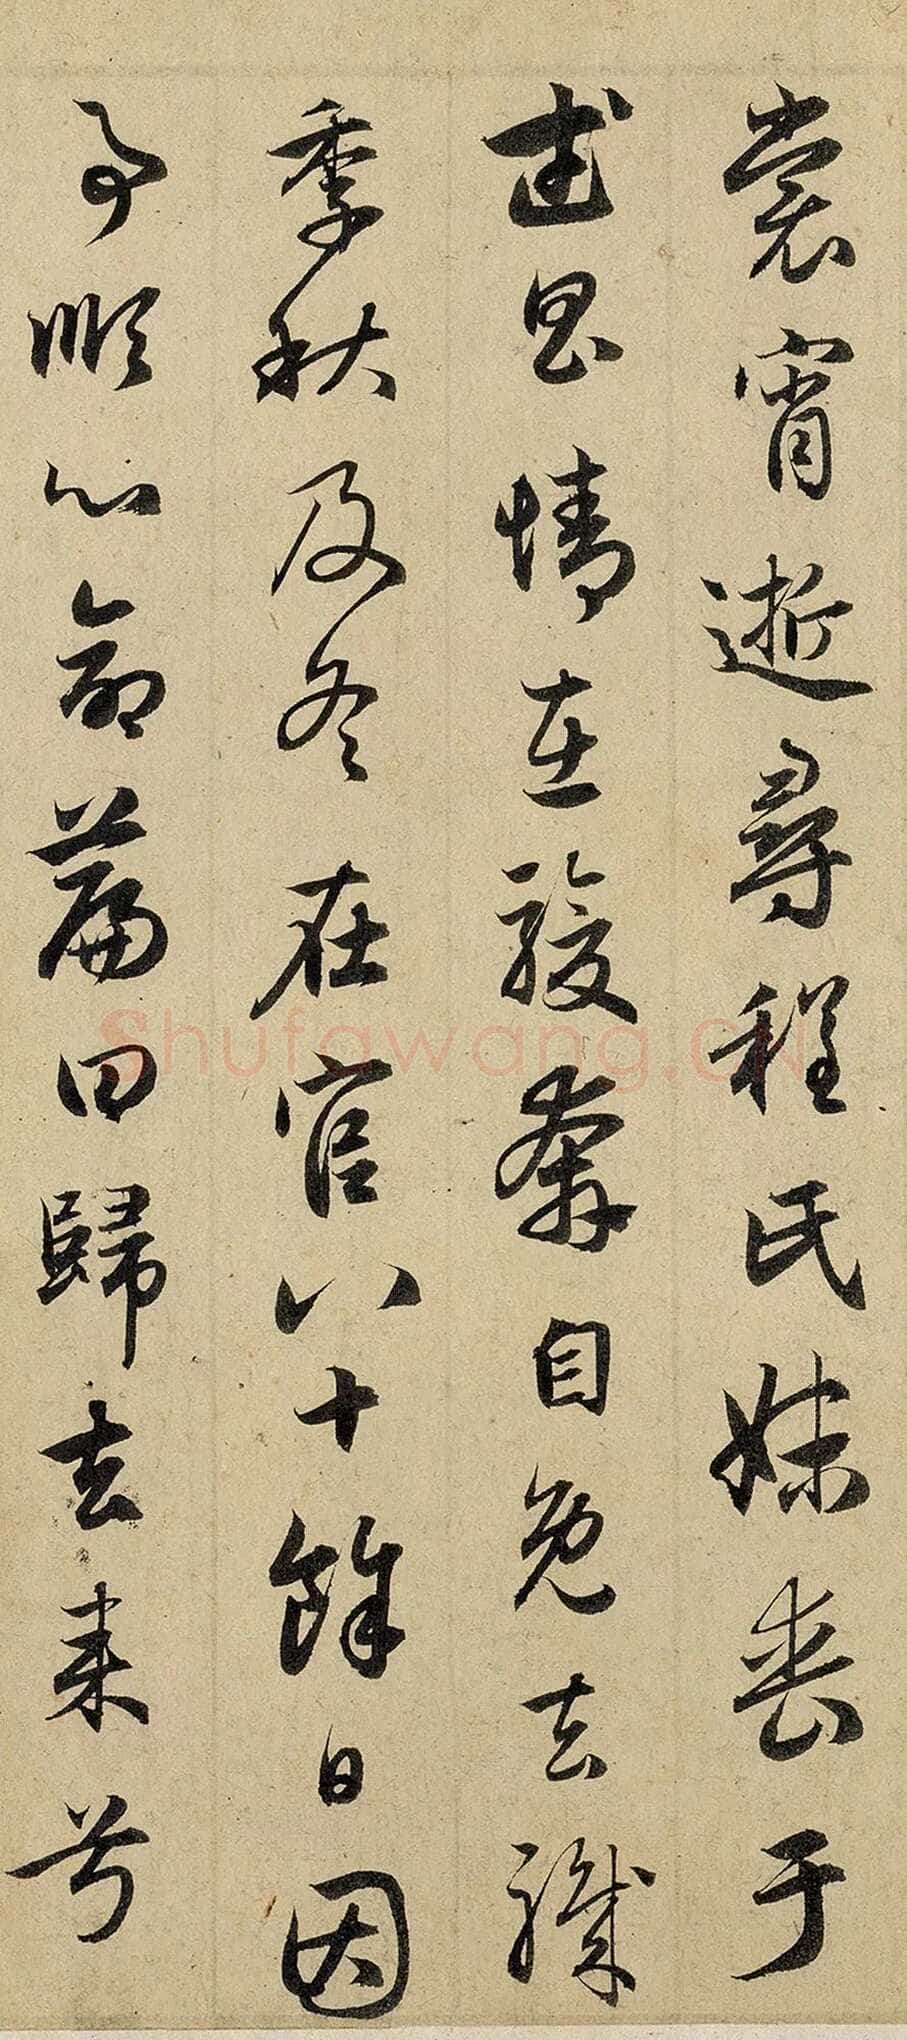 裳宵逝尋程氏妹喪于
武昌情在駿奔自免去職
季秋及冬在官八十餘日因
事順心命篇曰歸去來兮
Shufawang.CN